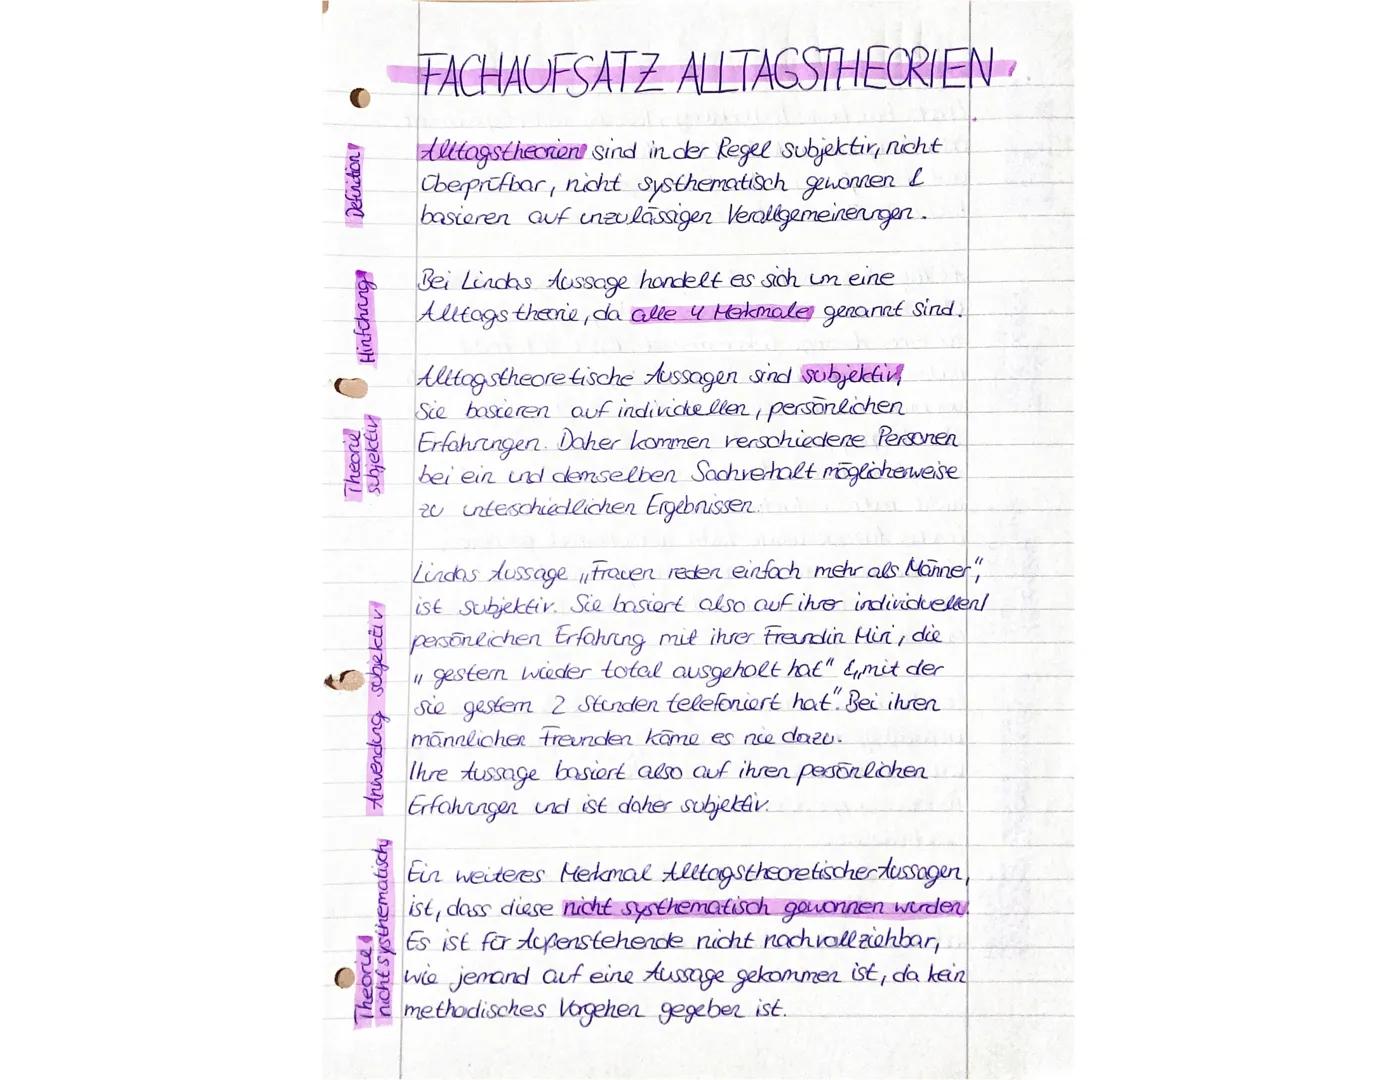 FACHAUFSATZ ALLTAGSTHEORIEN
Definition
Alltagstheorien sind in der Regel subjektiv, nicht
Überprüfbar, nicht systhematisch gewonnen &
basieren auf unzulässigen Verallgemeinerungen.
Hinführung
Bei Lindas Aussage handelt es sich um eine
Alltagstheorie, da alle 4 Merkmale genannt sind.
Theorie
subjektiv
Alltagstheoretische Aussagen sind subjektiv,
Sie basieren auf individuellen, persönlichen
Erfahrungen. Daher kommen verschiedene Personen
bei ein und demselben Sachverhalt möglicherweise
zu unterschiedlichen Ergebnissen.
Anwendung subjektiv
Lindas Aussage „Frauen reden einfach mehr als Männer“,
ist subjektiv. Sie basiert also auf ihrer individuellen/
persönlichen Erfahrung mit ihrer Freundin Miri, die
„gestern wieder total ausgeholt hat“ & „mit der
sie gestern 2 Stunden telefoniert hat“. Bei ihren
männlichen Freunden käme es nie dazu.
Ihre Aussage basiert also auf ihren persönlichen
Erfahrungen und ist daher subjektiv.
Theorie
nicht systhematisch
Ein weiteres Merkmal Alltagstheoretischer Aussagen,
ist, dass diese nicht systhematisch gewonnen wurden.
Es ist für Außenstehende nicht nachvollziehbar,
wie jemand auf eine Aussage gekommen ist, da kein
methodisches Vorgehen gegeben ist.